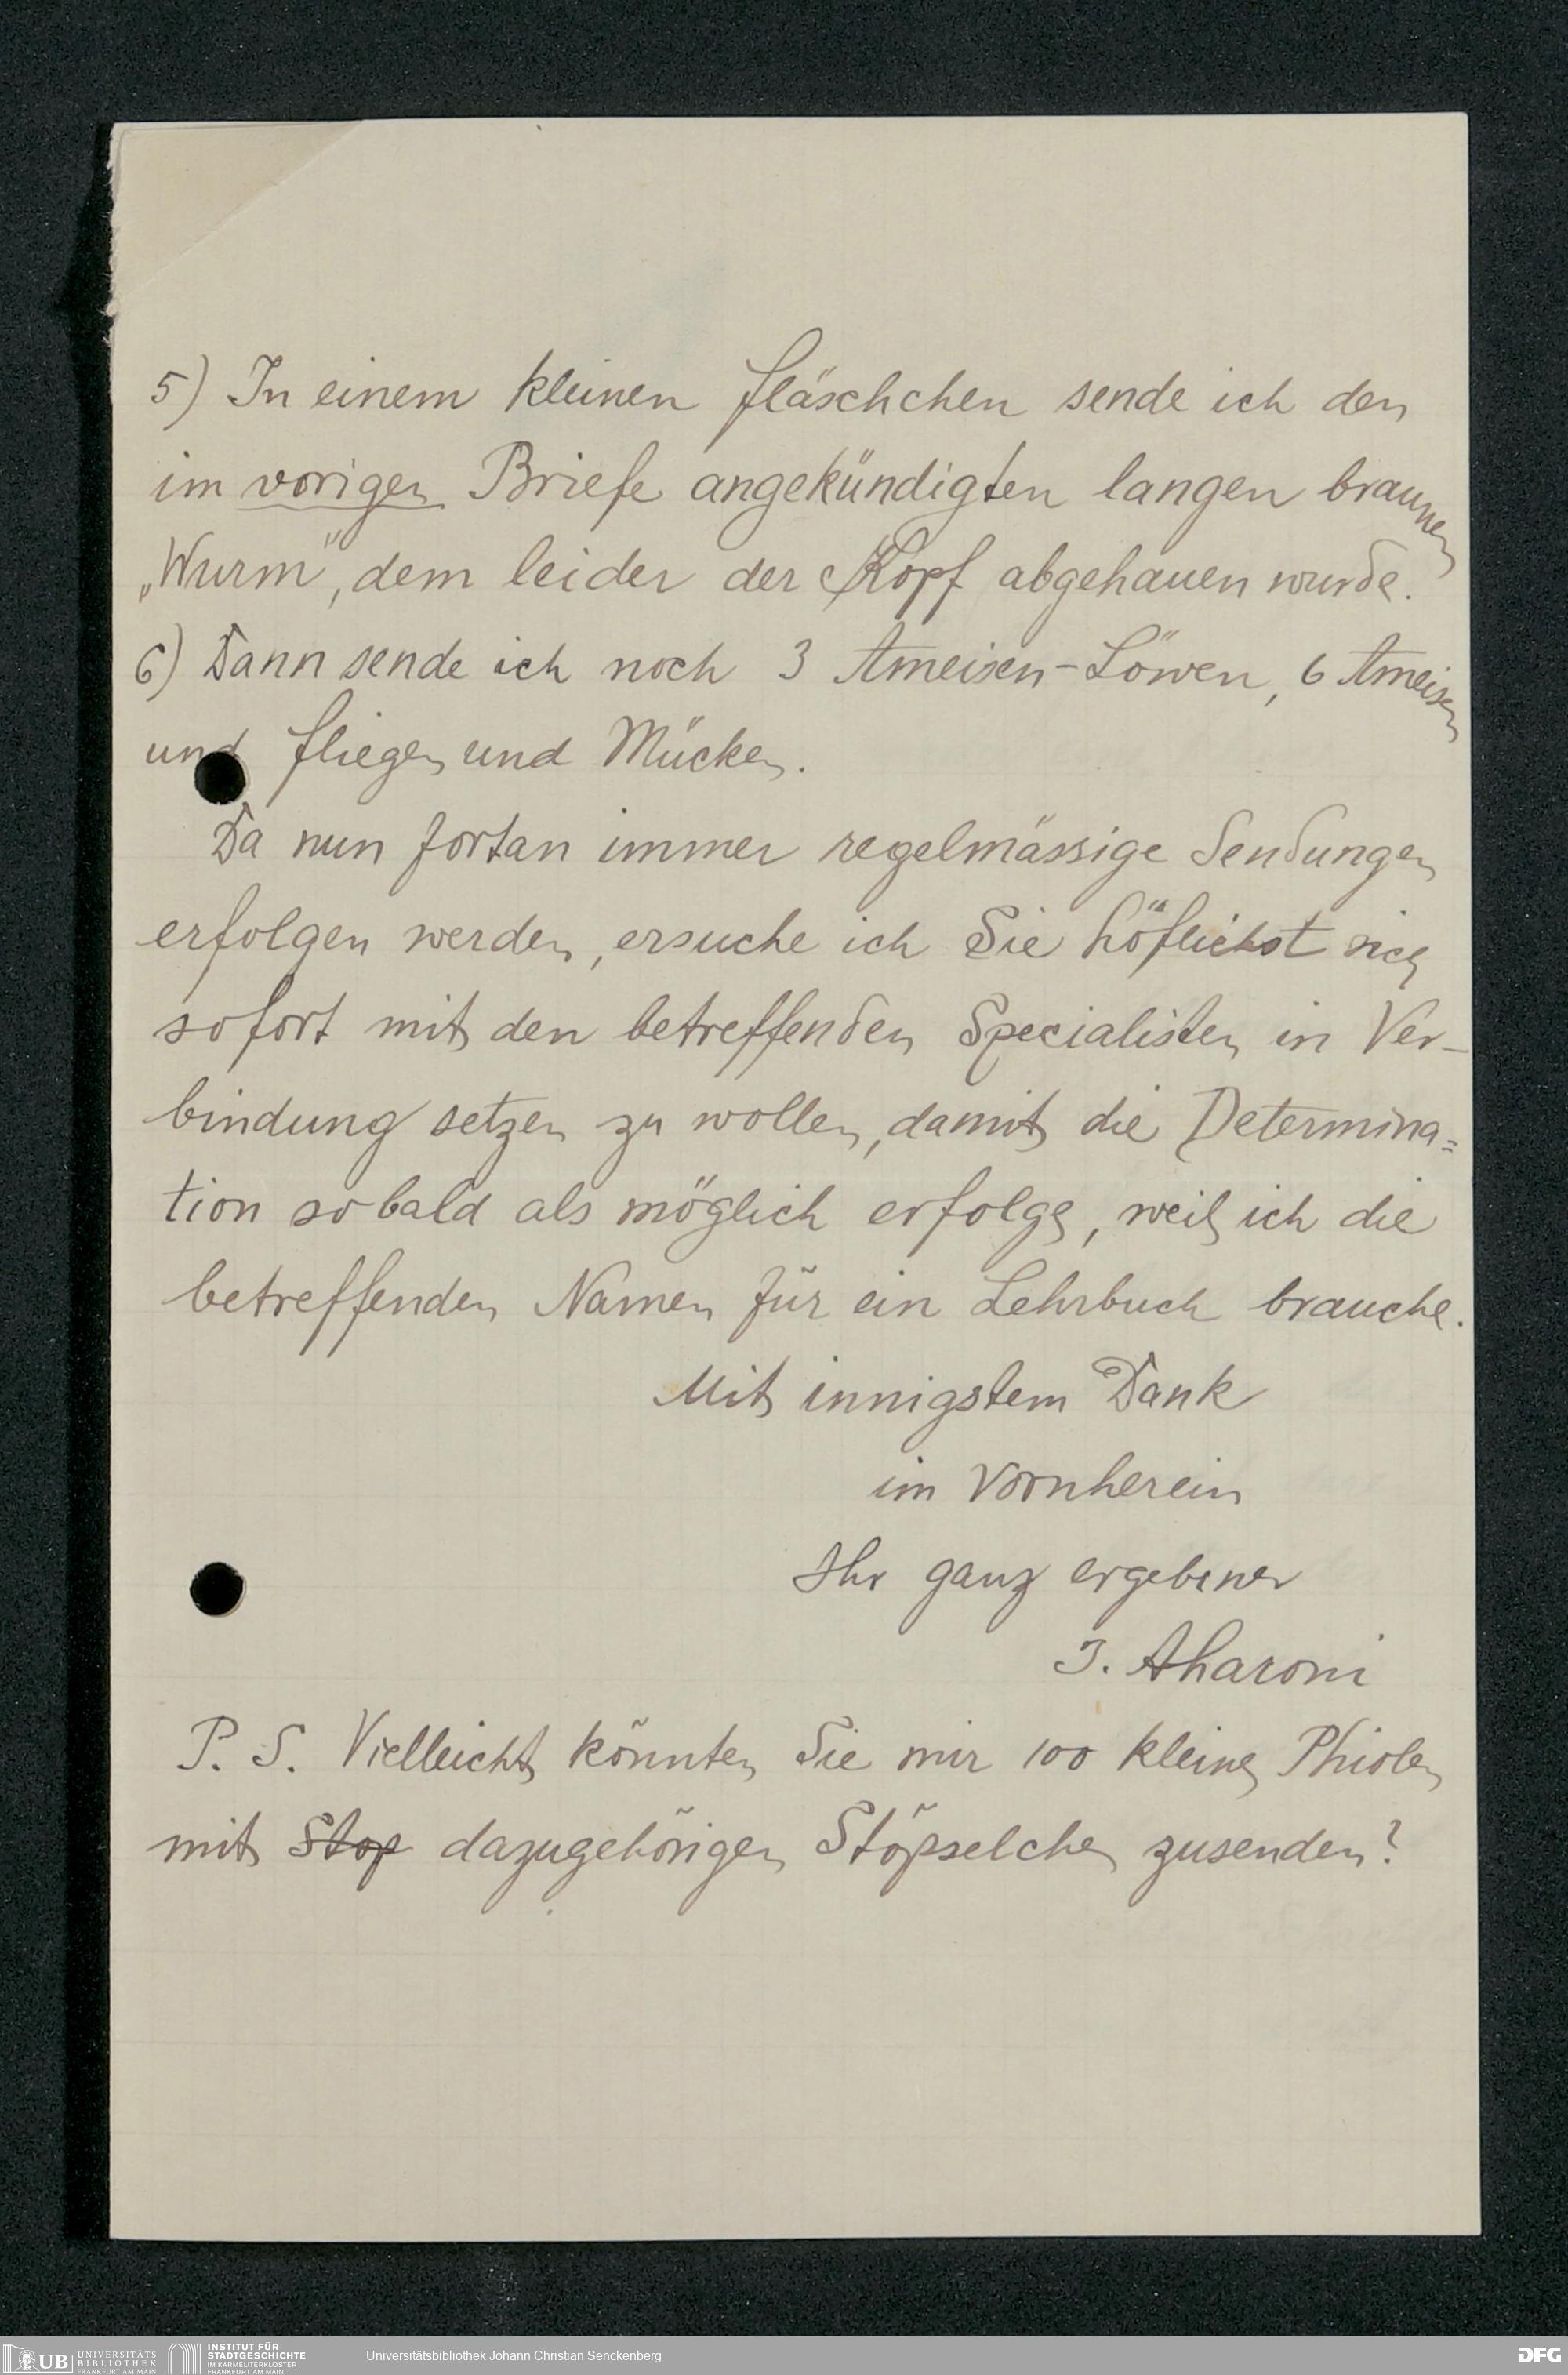 5) In einem kleinen Fläschchen sende ich den
im vorigen Briefe angekündigten langen braunen
„Wurm", dem leider der Kopf abgehauen wurde.
6) Dann sende ich noch 3 Ameisen-Löwen, 6 Ameisen
und Fliegen und Mücken.
Da nun fortan immer regelmässige Sendungen
erfolgen werden, ersuche ich Sie höflichst sich
sofort mit den betreffenden Specialisten in Ver-
bindung setzen zu wollen, damit die Determina=
tion sobald als möglich erfolge, weil ich die
betreffenden Namen für ein Lehrbuch brauche.
Mit innigstem Dank
im Vornherein
Ihr ganz ergebener
J. Aharoni
P. S. Vielleicht könnten Sie mir 100 kleine Phiolen
mit Stop dazugehörigen Stöpselchen zusenden?
UB UNIVERSITÄTS BIBLIOTHEK FRANKFURT AM MAIN
INSTITUT FÜR STADTGESCHICHTE IM KARMELITERKLOSTER FRANKFURT AM MAIN
Universitätsbibliothek Johann Christian Senckenberg
DFG